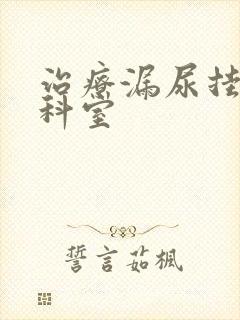 治療漏尿挂
科室
誓言茹楓